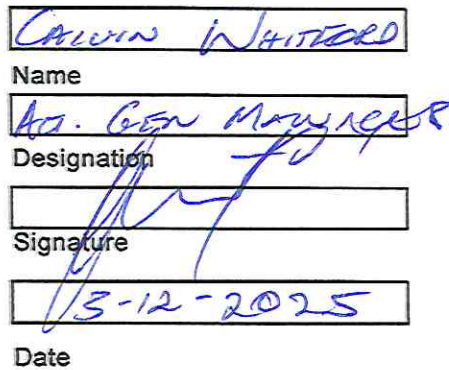 CALVIN WHITFORD
Name
Act. GEN MANAGER
Designation
Signature
3-12-2025
Date